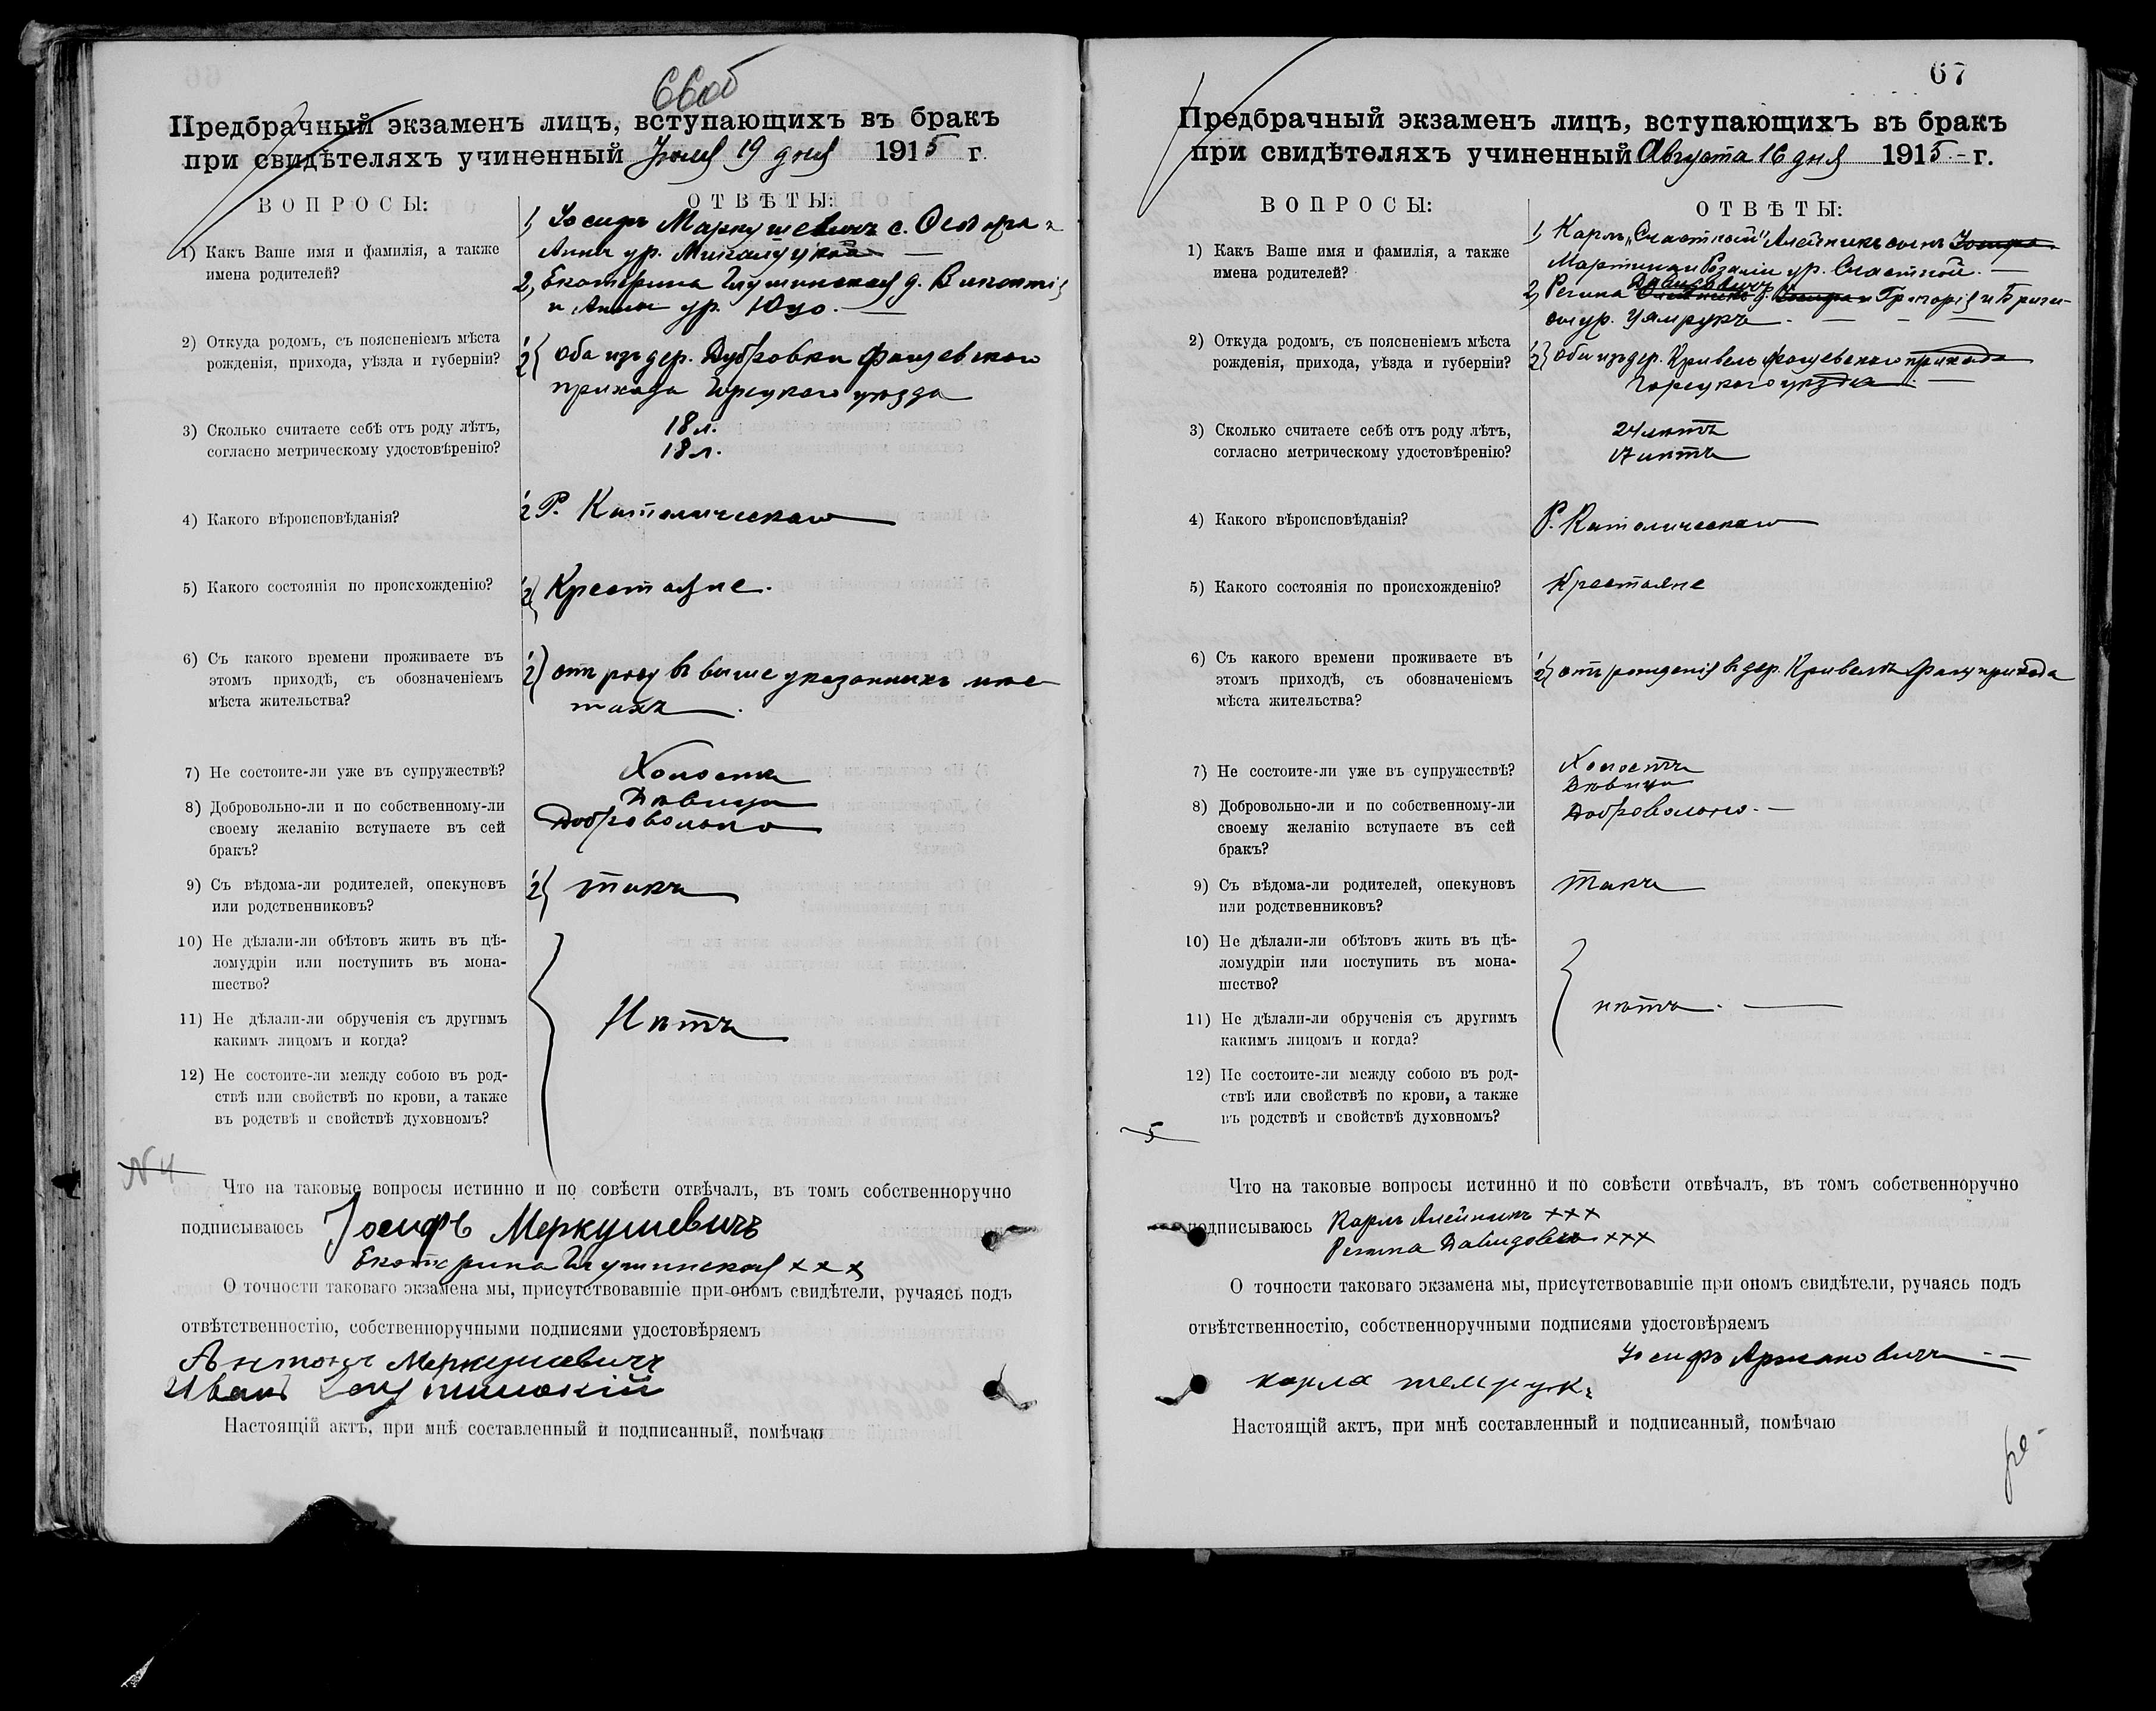 66об
Предбрачный экзаменъ лицъ, вступающихъ въ бракъ
при свидѣтеляхъ учиненный Іюля 19 дня 1915 г.
ВОПРОСЫ:
ОТВѢТЫ:
1) Какъ Ваше имя и фамилія, а также
имена родителей?
1) Іосифъ Маркушевичъ с.
Анны ур.
2) Екатерина Глушинская д. Викентія
и Анны ур.
2) Откуда родомъ, съ поясненіемъ мѣста
рожденія, прихода, уѣзда и губерніи?
1 2 } Оба изъ дер. Дубровки Фащевскаго
прихода Горецкаго уѣзда
3) Сколько считаете себѣ отъ роду лѣтъ,
согласно метрическому удостовѣренію?
18 л.
18 л.
4) Какого вѣроисповѣданія?
1 2 Р. Католическаго
5) Какого состоянія по происхожденію?
1 2 } Крестьяне.
6) Съ какого времени проживаете въ
этомъ приходѣ, съ обозначеніемъ
мѣста жительства?
1 2 } отъ роду въ выше указанныхъ мѣс
тахъ.
7) Не состоите-ли уже въ супружествѣ?
Холостъ
Дѣвица
8) Добровольно-ли и по собственному-ли
своему желанію вступаете въ сей
бракъ?
Добровольно
9) Съ вѣдома-ли родителей, опекуновъ
или родственниковъ?
1 2 } такъ
10) Не дѣлали-ли обѣтовъ жить въ цѣ-
ломудріи или поступить въ мона-
шество?
11) Не дѣлали-ли обрученія съ другимъ
какимъ лицомъ и когда?
Нѣтъ
12) Не состоите-ли между собою въ род-
ствѣ или свойствѣ по крови, а также
въ родствѣ и свойствѣ духовномъ?
N 4
Что на таковые вопросы истинно и по совѣсти отвѣчалъ, въ томъ собственноручно
подписываюсь Іосифъ Меркушевичъ
Екатерина Глушинская ×××
О точности таковаго экзамена мы, присутствовавшіе при ономъ свидѣтели, ручаясь подъ
отвѣтственностію, собственноручными подписями удостовѣряемъ
Антонъ Меркушевичъ
Иванъ Глушинскій
Настоящій актъ, при мнѣ составленный и подписанный, помѣчаю
67
Предбрачный экзаменъ лицъ, вступающихъ въ бракъ
при свидѣтеляхъ учиненный Августа 16 дня 1915 г.
ВОПРОСЫ:
ОТВѢТЫ:
1) Какъ Ваше имя и фамилія, а также
имена родителей?
1) Карлъ „Счастной" Алейникъ сынъ Іосифа
Мартина и Розаліи ур. Счастной.
Давидовичъ
2) Регина д. Григорія и Бриги-
ды ур.
2) Откуда родомъ, съ поясненіемъ мѣста
рожденія, прихода, уѣзда и губерніи?
1 2 } Оба изъ дер. Кривель Фащевскаго прихода
Горецкаго уѣзда.
3) Сколько считаете себѣ отъ роду лѣтъ,
согласно метрическому удостовѣренію?
24 лѣтъ
17 лѣтъ
4) Какого вѣроисповѣданія?
Р. Католическаго
5) Какого состоянія по происхожденію?
Крестьяне
6) Съ какого времени проживаете въ
этомъ приходѣ, съ обозначеніемъ
мѣста жительства?
1 2 } отъ рожденія въ дер. Кривель Фащ прихода
7) Не состоите-ли уже въ супружествѣ?
Холостъ
Дѣвица
8) Добровольно-ли и по собственному-ли
своему желанію вступаете въ сей
бракъ?
Добровольно.
9) Съ вѣдома-ли родителей, опекуновъ
или родственниковъ?
Такъ
10) Не дѣлали-ли обѣтовъ жить въ цѣ-
ломудріи или поступить въ мона-
шество?
11) Не дѣлали-ли обрученія съ другимъ
какимъ лицомъ и когда?
нѣтъ.
12) Не состоите-ли между собою въ род-
ствѣ или свойствѣ по крови, а также
въ родствѣ и свойствѣ духовномъ?
5
Что на таковые вопросы истинно и по совѣсти отвѣчалъ, въ томъ собственноручно
подписываюсь Карлъ Алейникъ ×××
Регина Давидовичъ ×××
О точности таковаго экзамена мы, присутствовавшіе при ономъ свидѣтели, ручаясь подъ
отвѣтственностію, собственноручными подписями удостовѣряемъ
Іосифъ
карла
Настоящій актъ, при мнѣ составленный и подписанный, помѣчаю